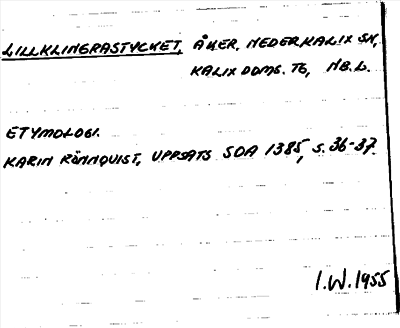 LILLKLINGRASTYCKET, ÅKER, NEDERKALIX SN,
KALIX DOMS. TG, NB.L.
ETYMOLOGI.
KARIN RÖNNQUIST, UPPSATS SOA 1385, S. 36-37.
I.W. 1955